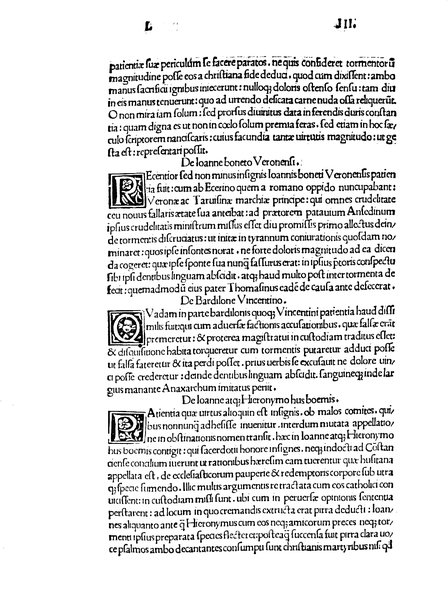 L III.
patientiæ suæ periculum se facere paratos, ne quis confideret tormentorũ
magnitudine posse eos a christiana fide deduci, quod cum dixissent: ambo
manus sacrifici ignibus iniecerunt: nulloq; doloris ostenso sensu: tam diu
in eis manus tenuerunt: quo ad urrendo desicata carne nuda ossa reliquerũt.
O non mira iam solum: sed prorsus diuinitus data in ferendis duris constan
tia: quam digna es ut non in cœlo solum premia feras, sed etiam in hoc sæ/
culo scriptorem nanciscaris: cuius facundia tantæ uirtutis magnitudo: ut ge
sta est: repræsentari possit.
De Ioanne boneto Veronensi.
REcentior sed non minus insignis Ioannis boneti Veronensis patien
tia fuit: cum ab Ecerino quem a romano oppido nuncupabant:
Veronæ ac Taruisinæ marchiæ principe: qui omnes crudelitate
ceu nouus fallaris ætate sua anteibat: ad prætorem patauium Ansedinum
ipsius crudelitatis ministrum missus esset diu promissis primo allectus dein/
de tormentis discruciatus: ut initæ in tyrannum coniurationis quosdam no/
minaret: quos ipse insontes norat. ne forte doloris magnitudo ad ea dicen
da cogeret: quæ ipse sponte sua nunq̃ fassurus erat: in ipsius p̃toris conspectu
sibi ipsi dentibus linguam abscidit. atq; haud multo post inter tormenta de
fecit: quemadmodũ eius pater Thomasinus eadẽ de causa ante defecerat.
De Bardilone Vincentino.
QVadam in parte bardilonis quoq; Vincentini patientia haud dissi
milis fuit: qui cum aduersæ factionis accusationibus, quæ falsæ erãt
premeretur: & proterea magistratui in custodiam traditus esset:
& disquisitione habita torqueretur cum tormentis putaretur adduci posse
ut falsa fateretur & ita perdi posset. prius uerbis se excusauit ne dolore uin/
ci posse crederetur: deinde dentibus linguam abscidit. sanguineq; inde lar
gius manante Anaxarchum imitatus perit.
De Ioanne atq; Hieronymo hus boemis.
PAtientia quæ uirtus alioquin est insignis, ob malos comites, qui/
bus nonnunq̃ adhesisse inuenitur, interdum mutata appellatio/
ne in obstinationis nomen transit. hæc in Ioanne atq; Hieronymo
hus boemis contigit: qui sacerdotii honore insignes, neq; indocti ad Cõstan
ciense concilium iuerunt ut rationibus hæresim eam tuerentur quæ husitana
appellata est, de ecclesiasticorum pauperte & redemptoris corpore sub utra
q; specie sumendo. Illic multis argumentis retractata cum eos catholici con
uicissent: in custodiam missi sunt. ubi cum in peruersæ opinionis sententia
perstarent: ad locum in quo cremandis extructa erat pirra deducti: Ioan/
nes aliquanto ante q̃ Hieronymus cum eos neq; amicorum preces neq; tor/
menti ipsius præparata species flecteret: posteaq̃ succensa fuit pirra clara uo/
ce psalmos ambo decantantes consumpti sunt christianis martyribus nisi qd